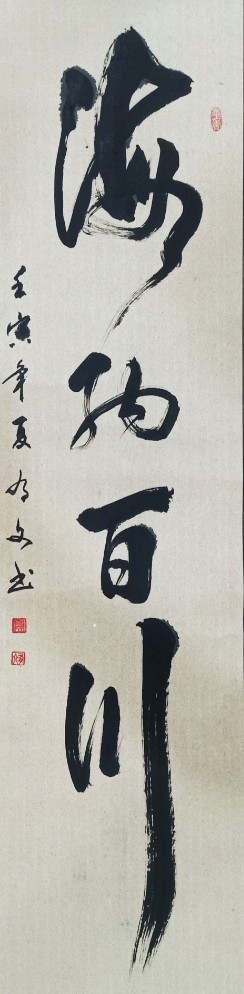 海纳百川
壬寅年夏有文书